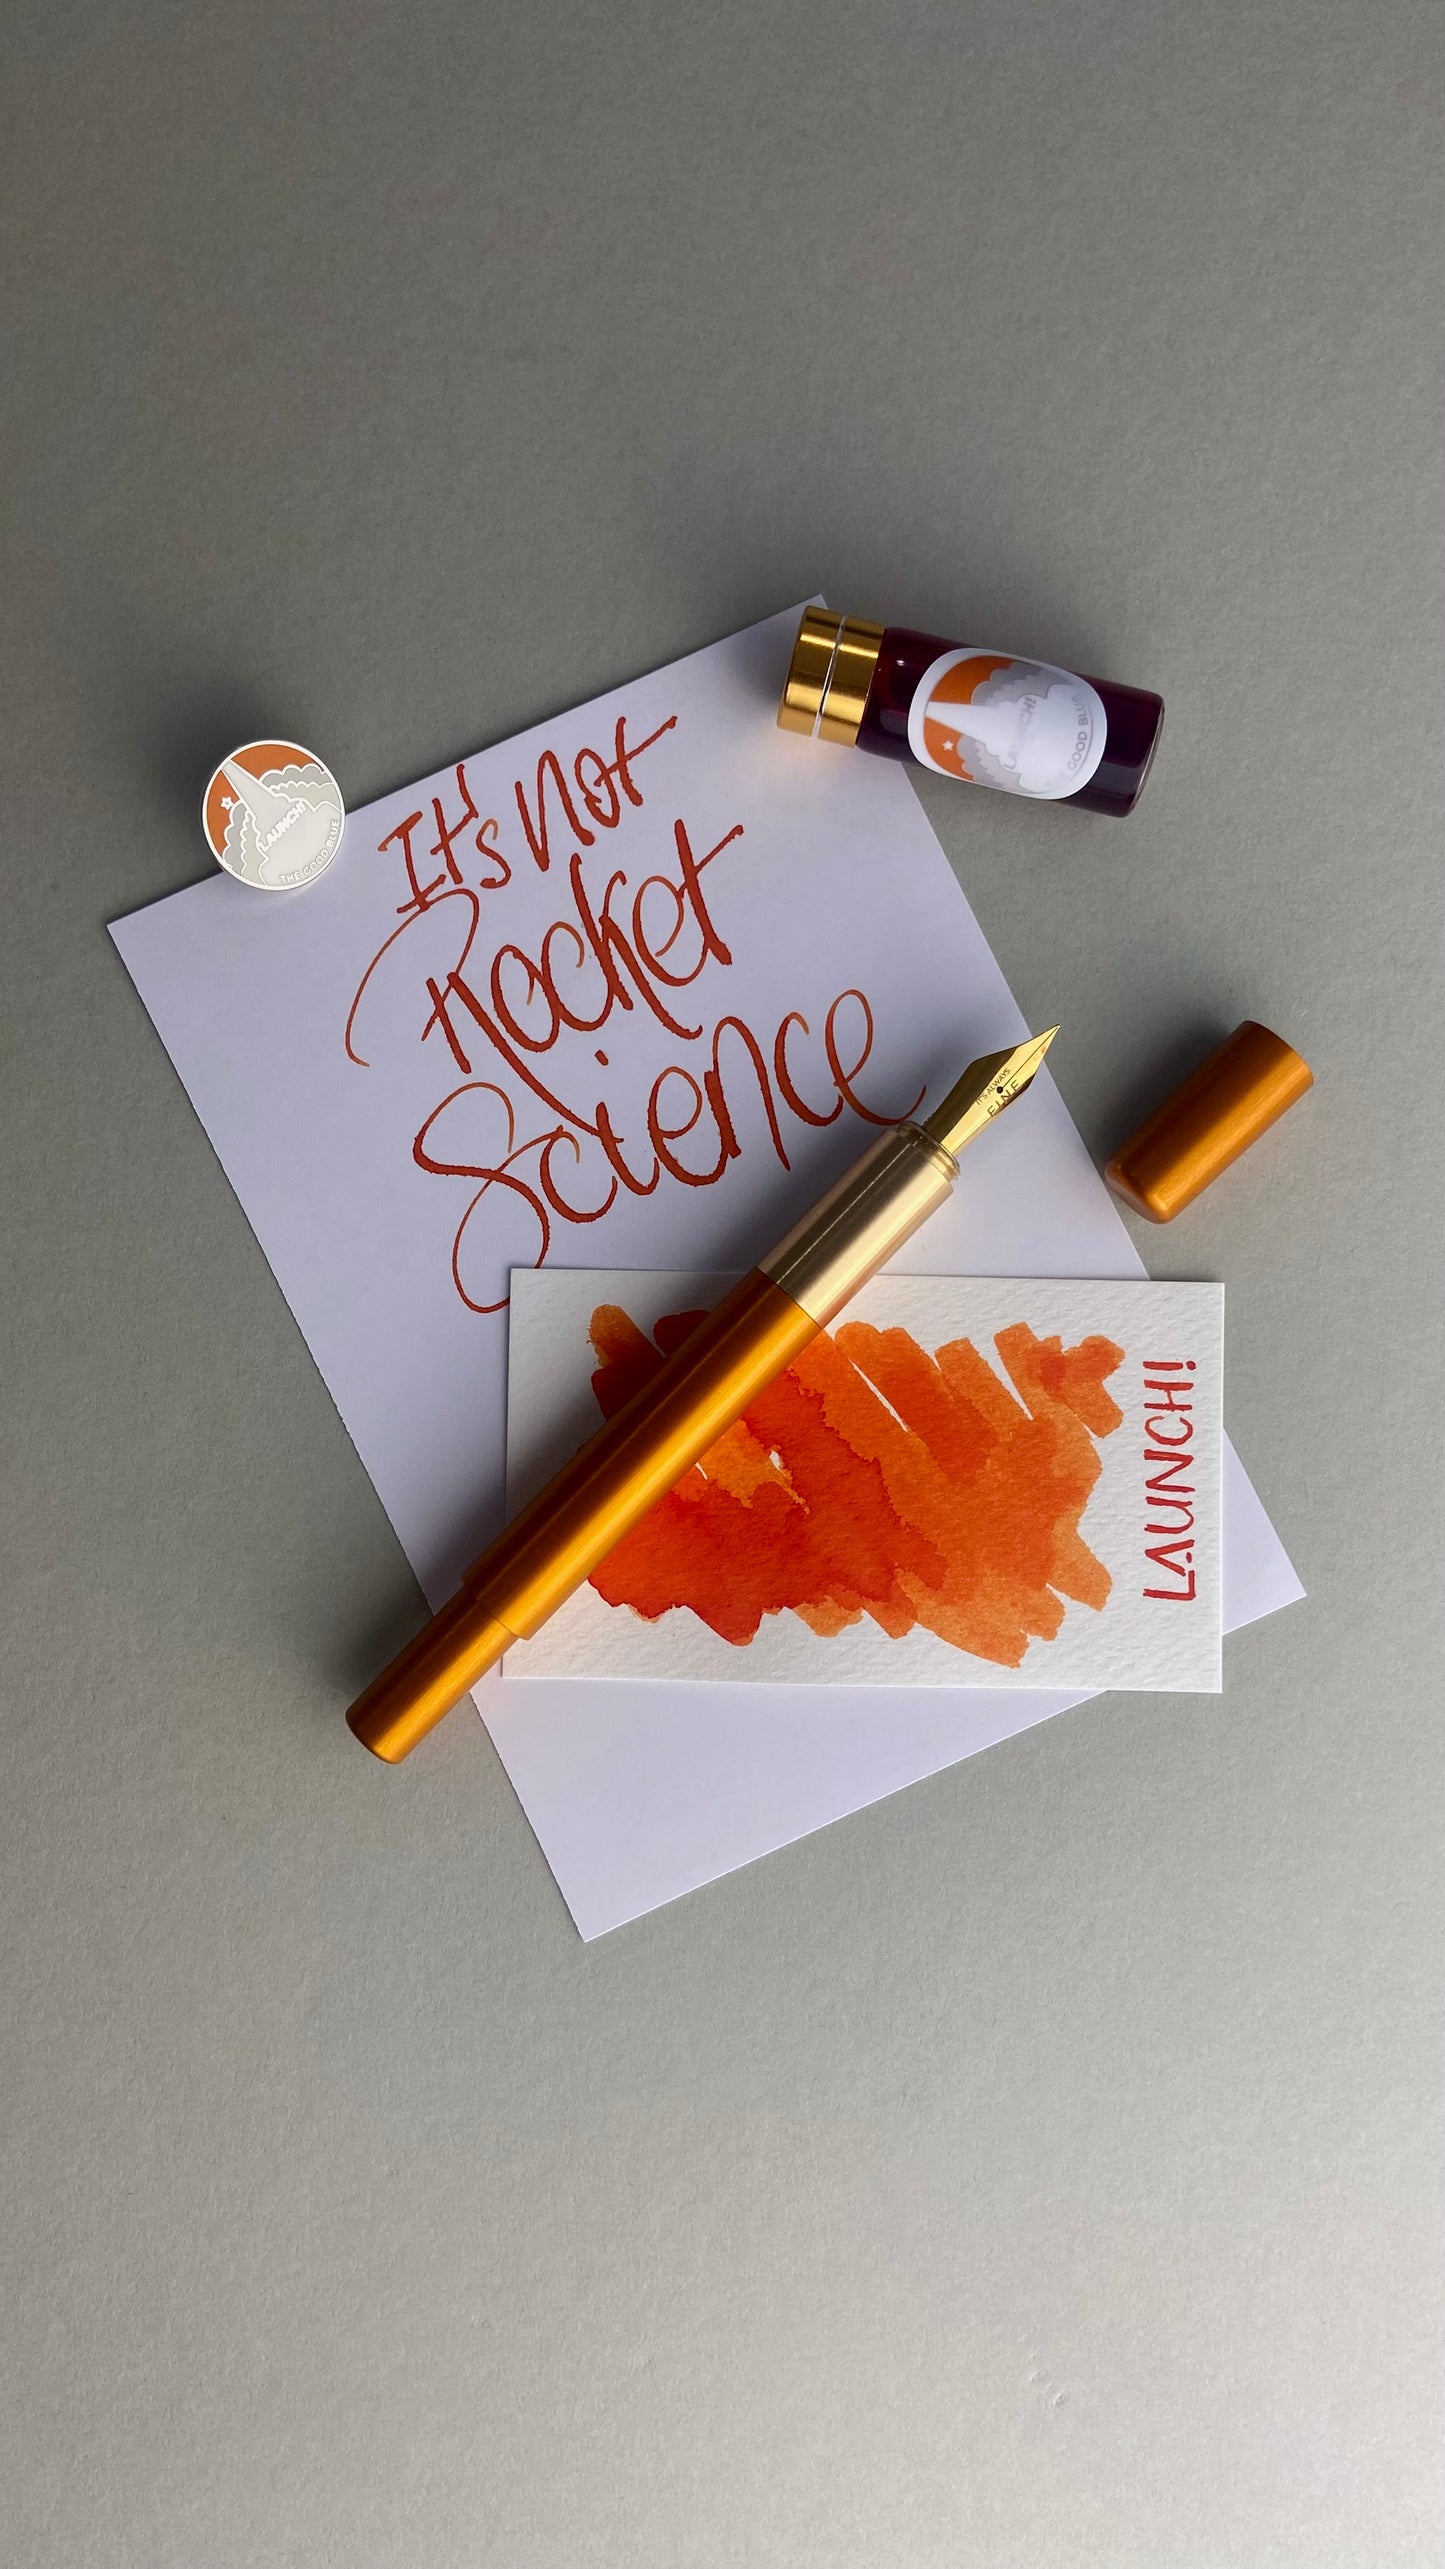 It's not
Rocket
Science
LAUNCH!
THE GOOD BLUE
LAUNCH!
THE GOOD BLUE
IT'S ALWAYS
F.I.N.E
LAUNCH!